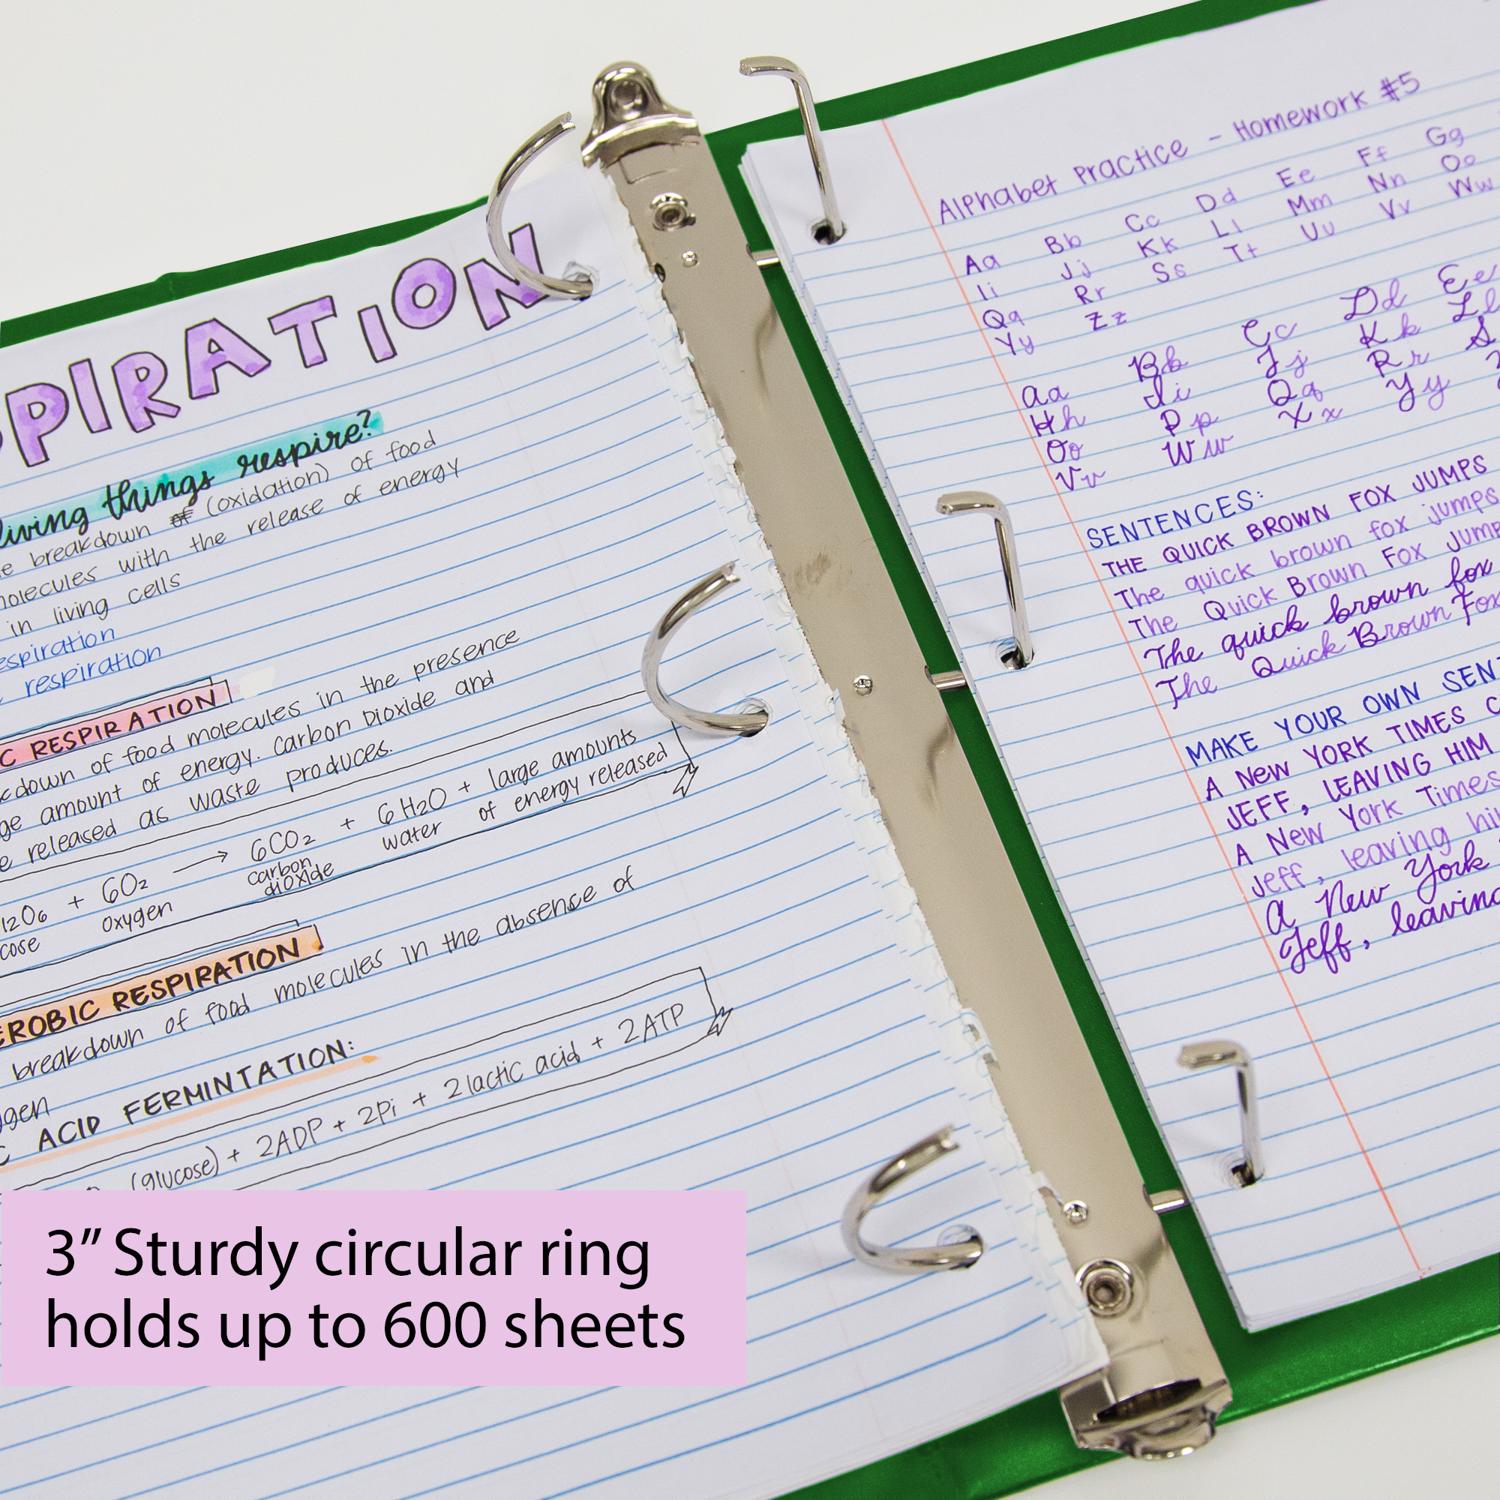 PIRATION
living things respire?
breakdown of (oxidation) of food
molecules with the release of energy
in living cells
respiration
respiration
C RESPIRATION
kdown of food molecules in the presence
ge amount of energy. Carbon Dioxide and
e released as waste produces.
12O6 + 6O2 → 6CO2 + 6H2O + large amounts
cose oxygen carbon dioxide water of energy released
EROBIC RESPIRATION
breakdown of food molecules in the absence of
ygen
C ACID FERMINTATION:
(glucose) + 2ADP + 2Pi + 2 lactic acid + 2ATP
3" Sturdy circular ring
holds up to 600 sheets
Alphabet Practice - Homework #5
Aa Bb Cc Dd Ee Ff Gg
Ii Jj Kk Ll Mm Nn Oo
Qq Rr Ss Tt Uu Vv Ww
Yy Zz
Aa Bb Cc Dd Ee
Hh Ii Jj Kk Ll
Oo Pp Qq Rr S
Vv Ww Xx Yy
SENTENCES:
THE QUICK BROWN FOX JUMPS
The quick brown fox jumps
The Quick Brown Fox Jump
The quick brown fox
The Quick Brown Fox
MAKE YOUR OWN SEN
A NEW YORK TIMES C
JEFF, LEAVING HIM
A New York Times
Jeff, leaving hi
A New York
Jeff, leaving